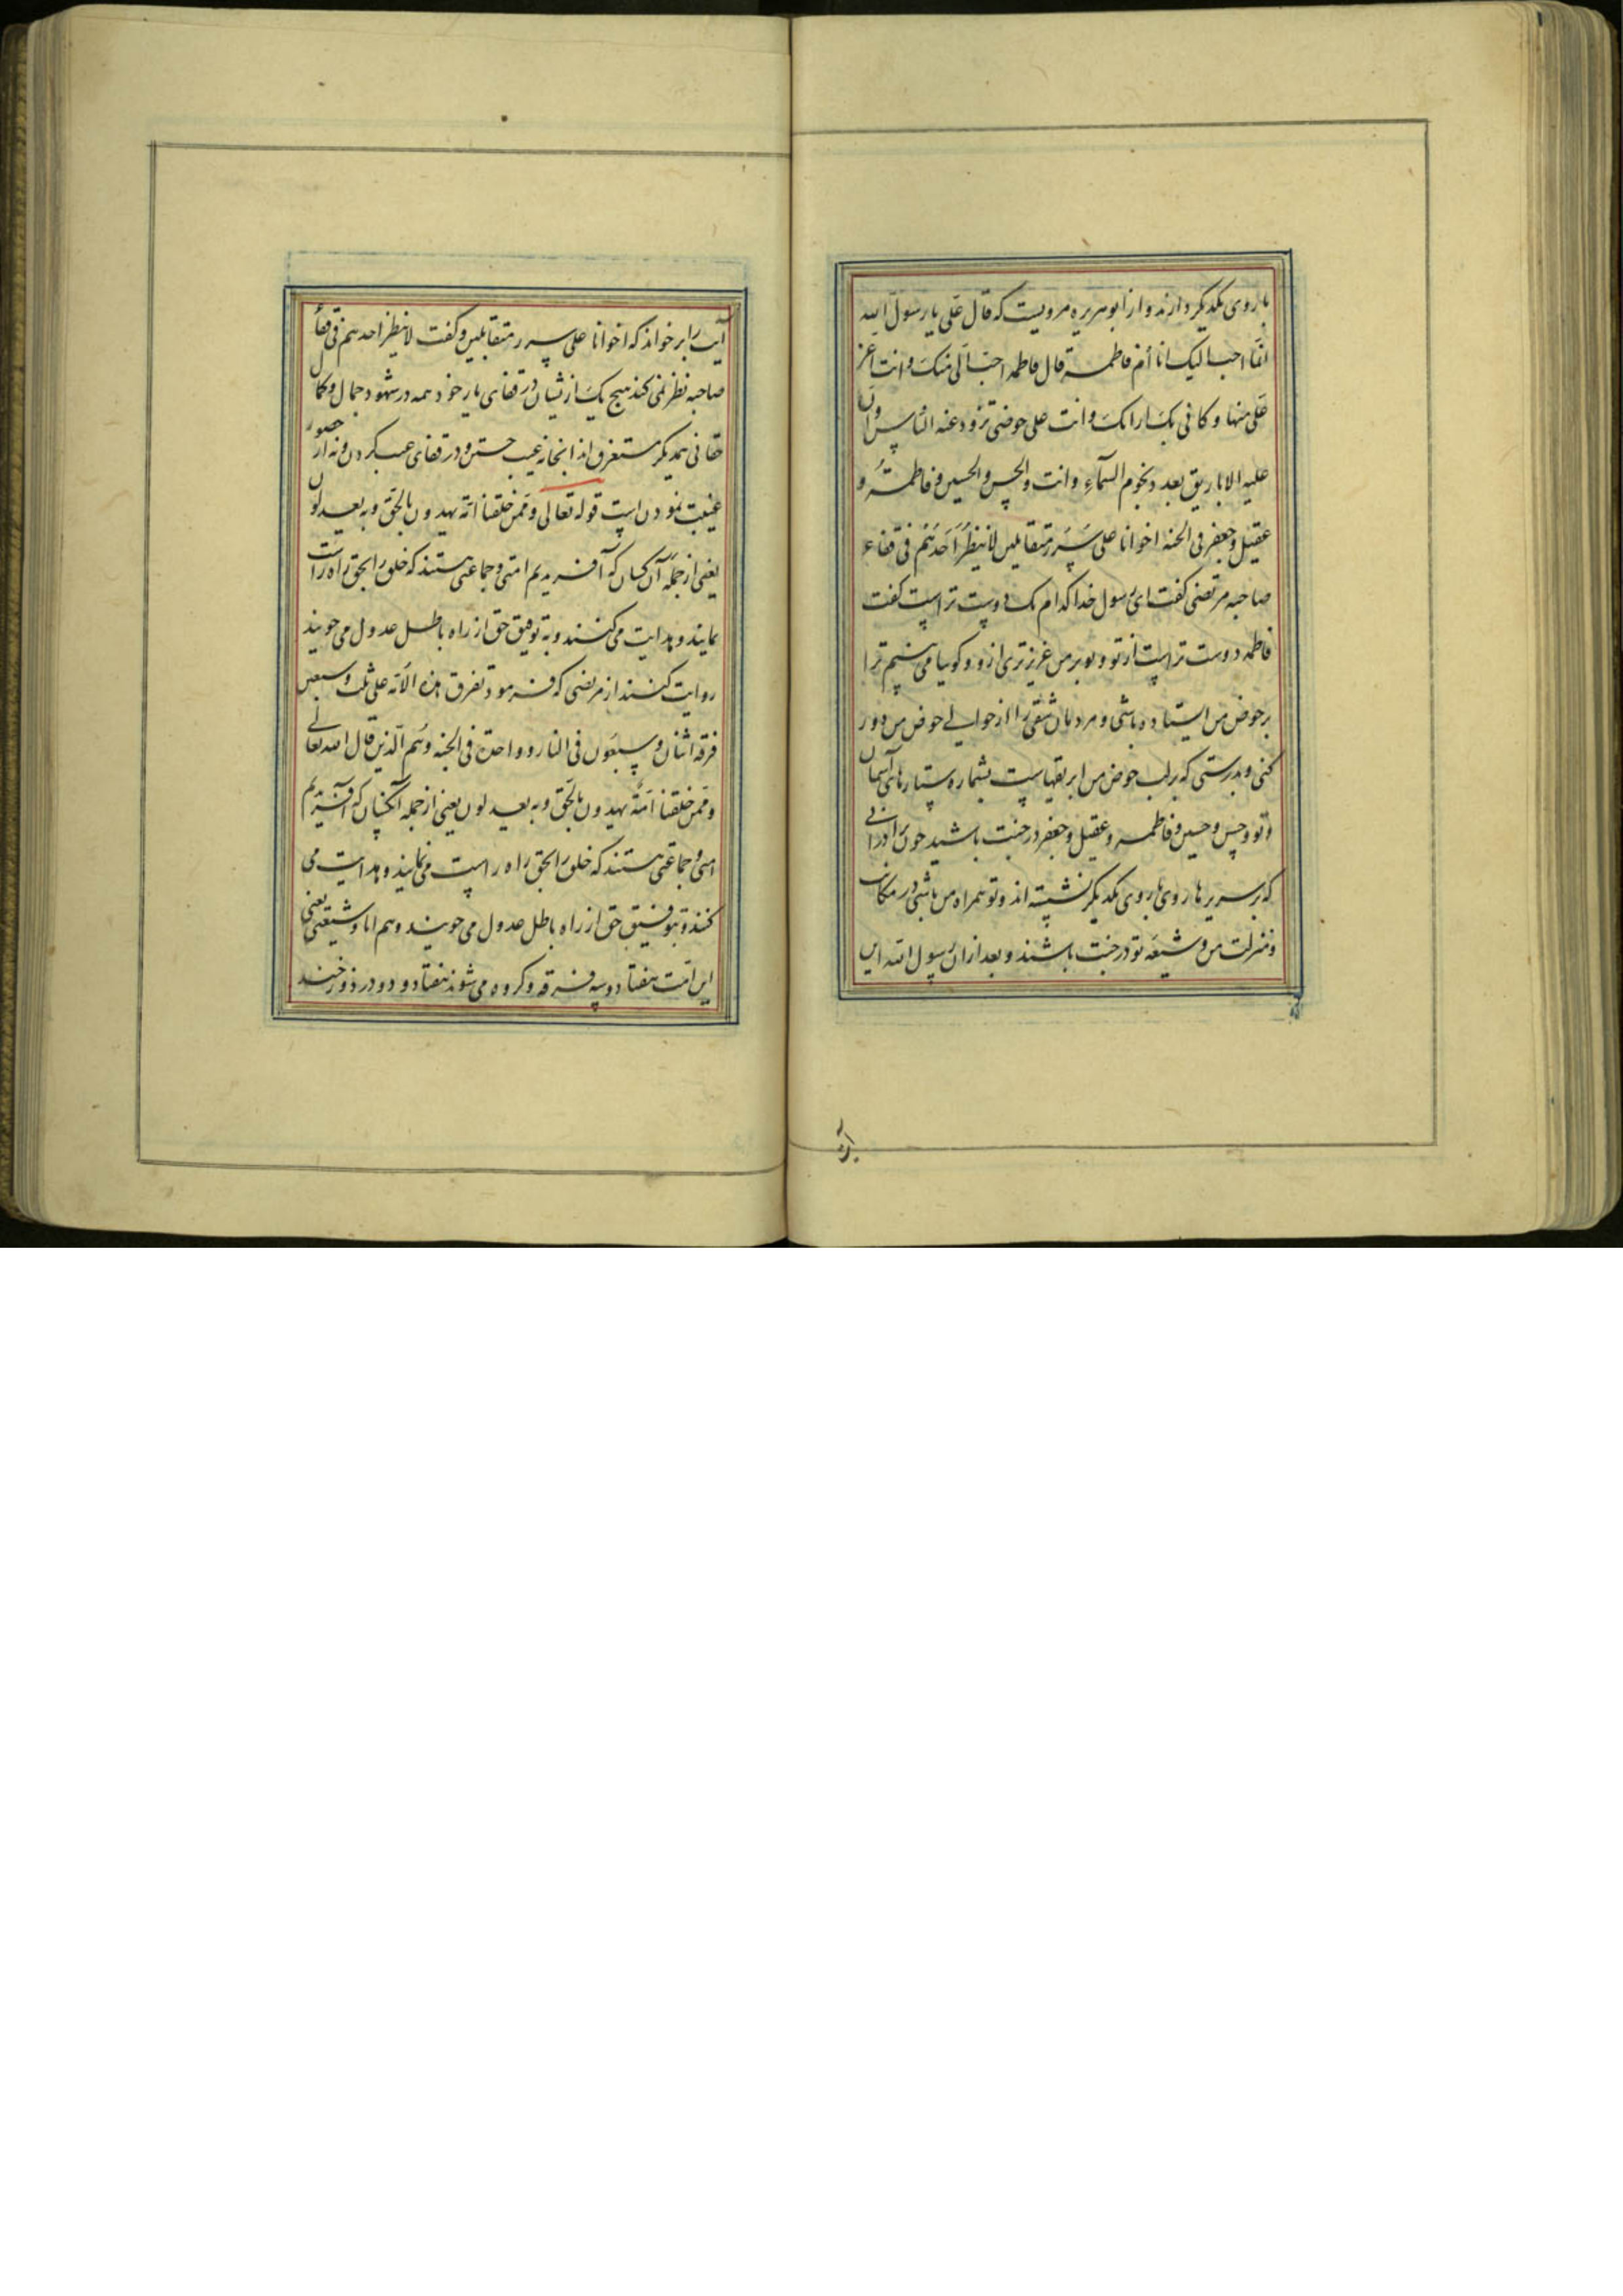 با روی یکدیگر دارند و از ابو هریره مرویست که قال علی یا رسول الله
انما احب الیک انا أم فاطمة قال فاطمه احب الی منک و انت اعز
علی منها و کانی بک انک و انت علی حوضی تزود عنه الناس و ان
علیه الاباریق بعدد نجوم السمآء و انت و الحسن و الحسین و فاطمة و
عقیل و جعفر فی الجنه اخوانا علی سرر متقابلین لا ینظر احدهم فی قفاء
صاحبه مرتضی کفت ای رسول خدا کدام یک دوست تر است کفت
فاطمه دوست تر است از تو و تو بر من عزیزتری ازو و کویا می بینم ترا
بر حوض من ایستاده باشی و مردمان شقی را از حوالے حوض من دور
کنی و بدرستی که بر لب حوض من ابریقهاست بشماره ستارهای آسمان
و تو و حسن و حسین و فاطمه و عقیل و جعفر در جنت باشید چون برادرانی
که بر سریرها روی با روی یکدیگر نشسته اند و تو همراه من باشی در مکان
و منزلت من و شیعه تو در جنت باشند و بعد از آن رسول الله این
آیت را بر خواند که اخوانا علی سرر متقابلین و کفت لا ینظر احدهم فی قفاء
صاحبه نظر نمی کند هیچ یک از یشان در قفای یار خود همه در شهود جمال و کمال
حقانی همدیکر مستغرق اند انجا نه عیب جستن و در قفای عیب کردن و نه از حضور
غیبت نمودن است قوله تعالی و ممن خلقنا امة یهدون بالحق و به یعدلون
یعنی از جمله آن کسان که آفریدیم امتی و جماعتی هستند که خلق را بحق راه راست
نمایند و هدایت می کنند و به توفیق حق از راه باطل عدول می جویند
روایت کنند از مرتضی که فرمود تفرق هذه الامه علی ثلث و سبعین
فرقه اثنان و سبعون فی النار و واحدة فی الجنه و هم الذین قال الله تعالی
و ممن خلقنا امة یهدون بالحق و به یعدلون یعنی از جمله آنکسان که آفریدیم
امتی و جماعتی هستند که خلق را بحق راه راست می نمایند و هدایت می
کنند و بتوفیق حق از راه باطل عدول می جویند و هم انا و شیعتی یعنی
این امت هفتاد و سه فرقه و کروه می شوند هفتاد و دو در دوزخند